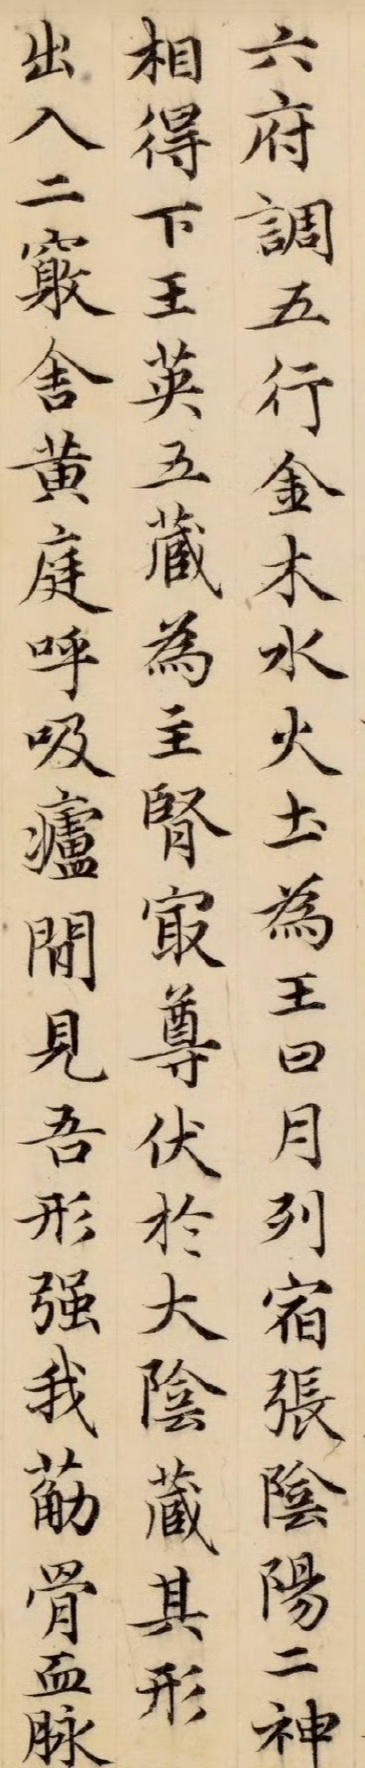 六府調五行金木水火土為王日月列宿張陰陽二神
相得下王英五蔵為主腎㝡尊伏於大陰蔵其形
出入二竅舎黄庭呼吸廬間見吾形强我筋骨血脉